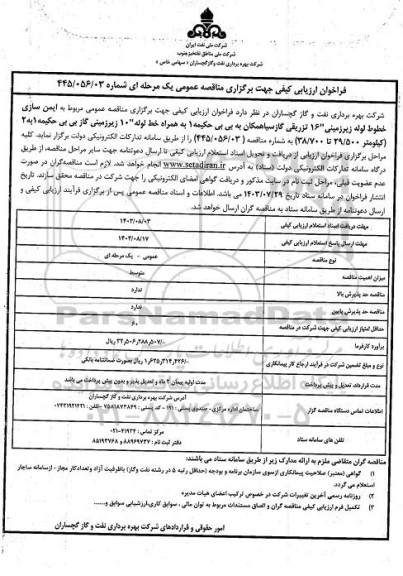 شرکت ملی نفت ایران
شرکت ملی مناطق نفتخیز جنوب
شرکت بهره برداری نفت و گاز گچساران (سهامی خاص)
فراخوان ارزیابی کیفی جهت برگزاری مناقصه عمومی یک مرحله ای شماره ۴۴۵/۰۵۶/۰۳
شرکت بهره برداری نفت و گاز گچساران در نظر دارد فراخوان ارزیابی کیفی جهت برگزاری مناقصه عمومی مربوط به ایمن سازی
خطوط لوله زیرزمینی"۱۶ تزریقی گازسیاهمکان به بی بی حکیمه۱ به همراه خط لوله"۱۰ زیرزمینی گاز بی بی حکیمه۱به۲
(کیلومتر ۲۹/۵۰۰ تا ۳۸/۷۰۰) به شماره مناقصه (۴۴۵/۰۵۶/۰۳) را از طریق سامانه تدارکات الکترونیکی دولت برگزار نماید. کلیه
مراحل برگزاری فراخوان ارزیابی از دریافت و تحویل اسناد استعلام ارزیابی کیفی تا ارسال دعوتنامه جهت سایر مراحل مناقصه، از طریق
درگاه سامانه تدارکات الکترونیکی دولت (ستاد) به آدرس www.setadiran.ir انجام خواهد شد. لازم است مناقصه‌گران در صورت
عدم عضویت قبلی، مراحل ثبت نام در سایت مذکور و دریافت گواهی امضای الکترونیکی را جهت شرکت در مناقصه محقق سازند. تاریخ
انتشار فراخوان در سامانه ستاد تاریخ ۱۴۰۳/۰۷/۲۹ می‌باشد. اطلاعات و اسناد مناقصه عمومی پس از برگزاری فرآیند ارزیابی کیفی و
ارسال دعوتنامه از طریق سامانه ستاد به مناقصه گران ارسال خواهد شد.
مهلت دریافت اسناد استعلام ارزیابی کیفی ۱۴۰۳/۰۸/۰۳
مهلت ارسال پاسخ استعلام ارزیابی کیفی ۱۴۰۳/۰۸/۱۷
نوع مناقصه عمومی - یک مرحله ای
میزان اهمیت مناقصه متوسط
مناقصه حد پذیرش بالا ندارد
مناقصه حد پذیرش پایین ندارد
حداقل امتیاز ارزیابی کیفی جهت شرکت در مناقصه ۶۰
برآورد کارفرما
نوع و مبلغ تضمین شرکت در فرآیند ارجاع کار پیمانکاری ریال بصورت ضمانتنامه بانکی
مدت قرارداد، تعدیل و پیش پرداخت مدت اولیه پیمان ۴ ماه و تعدیل پذیر و بدون پیش پرداخت می باشد
اطلاعات تماس دستگاه مناقصه گزار آدرس شرکت بهره برداری نفت و گاز گچساران
ساختمان اداره مرکزی - صندوق پستی : ۱۹۱ - کد پستی :
تلفن های سامانه ستاد مرکز تماس :
دفتر ثبت نام : ۸۸۹۶۹۷۳۷ و ۸۵۱۹۳۷۶۸
مناقصه گران متقاضی ملزم به ارائه مدارک زیر از طریق سامانه ستاد می باشند:
۱) گواهی (معتبر) صلاحیت پیمانکاری ازسوی سازمان برنامه و بودجه (حداقل رتبه ۵ در رشته نفت وگاز) باظرفیت آزاد و تعدادکار مجاز - ازسامانه ساجار
استعلام می گردد.
۲) روزنامه رسمی آخرین تغییرات شرکت در خصوص ترکیب اعضای هیات مدیره
۳) تکمیل فرم ارزیابی کیفی مناقصه گران و الصاق مستندات مربوط به توان مالی ، سوابق کاری،ارزشیابی سوابق و......
امور حقوقی و قراردادهای شرکت بهره برداری نفت و گاز گچساران
ParsNamadData